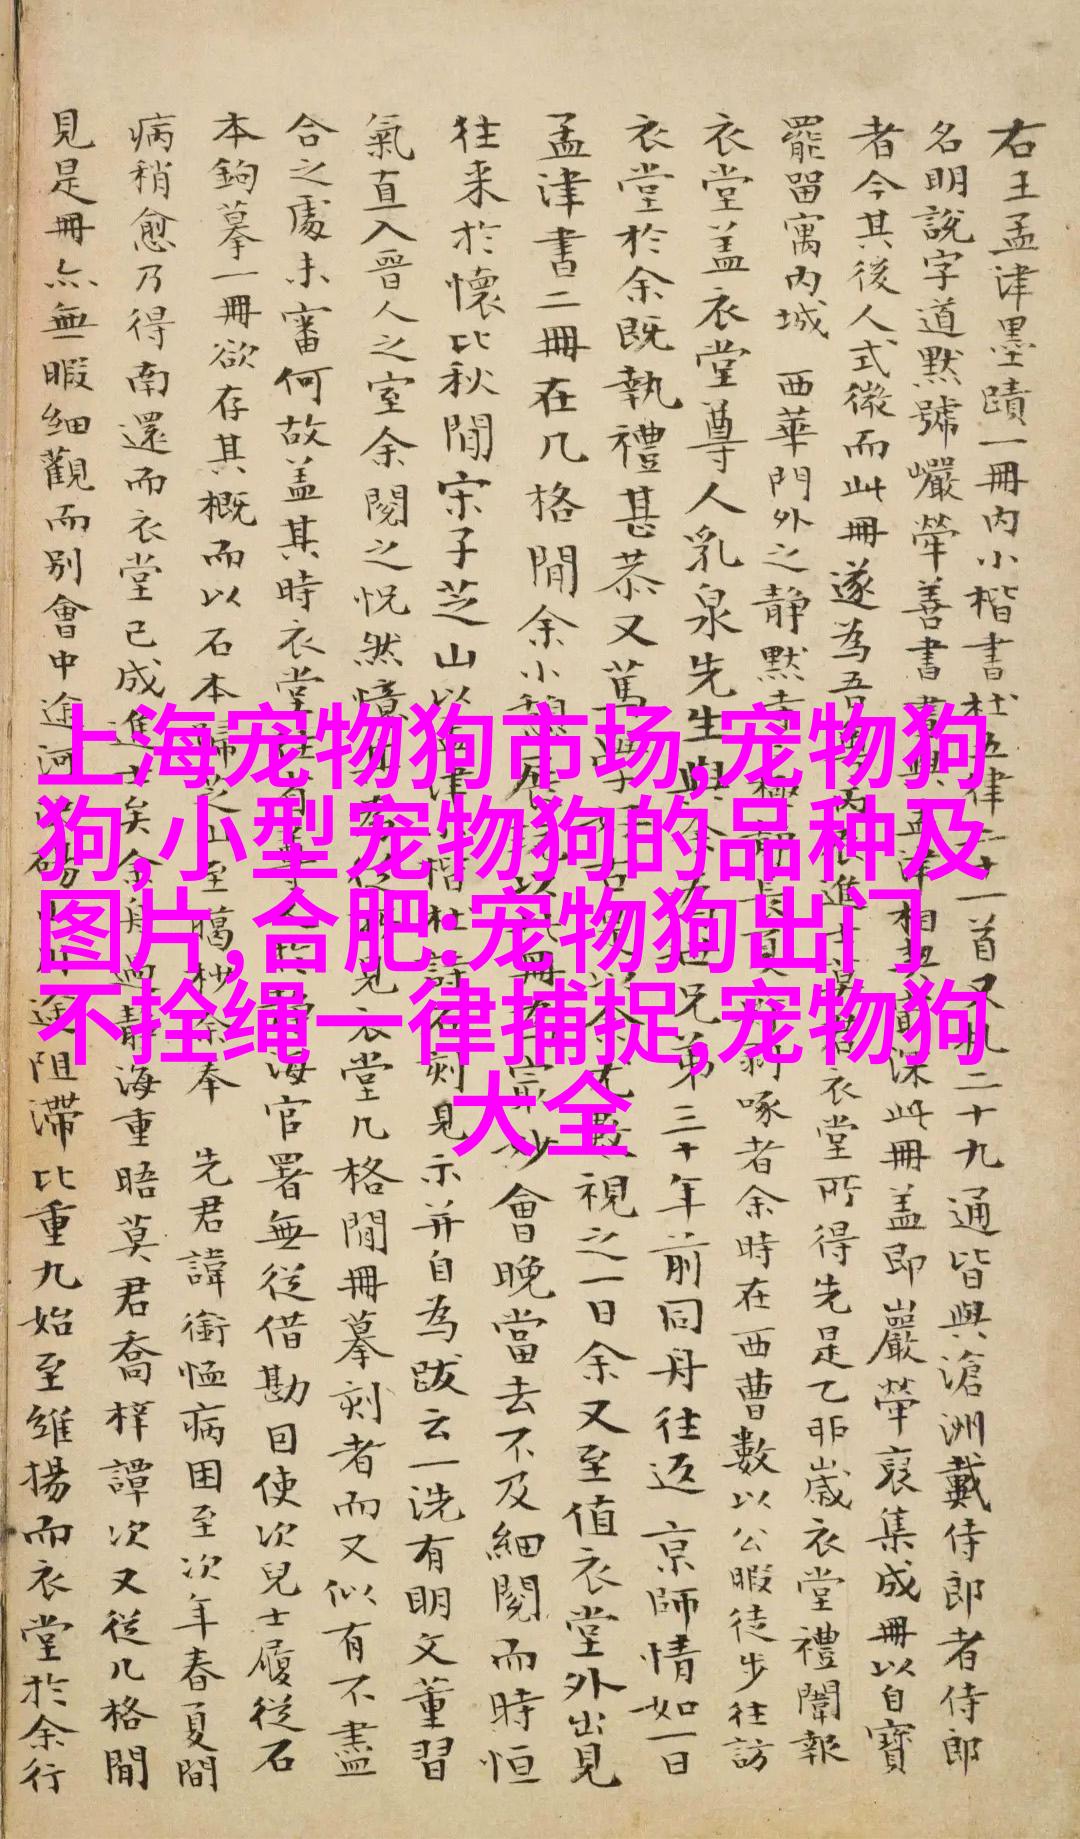 右王孟津墨蹟一冊內小楷書杜五律二十一首又札二十九通皆與滄洲戴侍郎者侍郎
名明說字道默號巖犖善書畫與孟津相與最深此冊蓋即巖犖裒集成冊以自寶
者今其後人式微而此冊遂為
衣堂所得先是乙卯歲衣堂禮闈報
罷留寓內城 西華門外之静默寺
啄者余時在西曹數以公暇徒步往訪
衣堂蓋衣堂尊人乳泉先生與
兄弟三十年前同舟往返 京師情如一日
衣堂於余既執禮甚恭又篤
視之一日余又至值衣堂外出見
孟津書二冊在几格間余小憩
會晚當去不及細閱而時恒
往来於懷比秋間宋子芝山以
見示并自為跋云一洗有明文董習
氣直入晉人之室余閱之怳然憶
見衣堂几格間冊摹刻者而又似有不盡
合之處未審何故蓋其時衣堂
海官署無從借勘因使次兒士履從石
本鉤摹一冊欲存其概而以石本歸芝山至臈杪余奉 先君諱銜恤病困至次年春夏間
病稍愈乃得南還而衣堂已成進士矣余舟過靜海重晤莫君喬梓譚次又從几格間
見是冊亦無暇细觀而别會中途河
途阻滞比重九始至維揚而衣堂於余行
上海宠物狗市场,宠物狗
狗,小型宠物狗的品种及
图片,合肥:宠物狗出门
不拴绳一律捕捉,宠物狗
大全